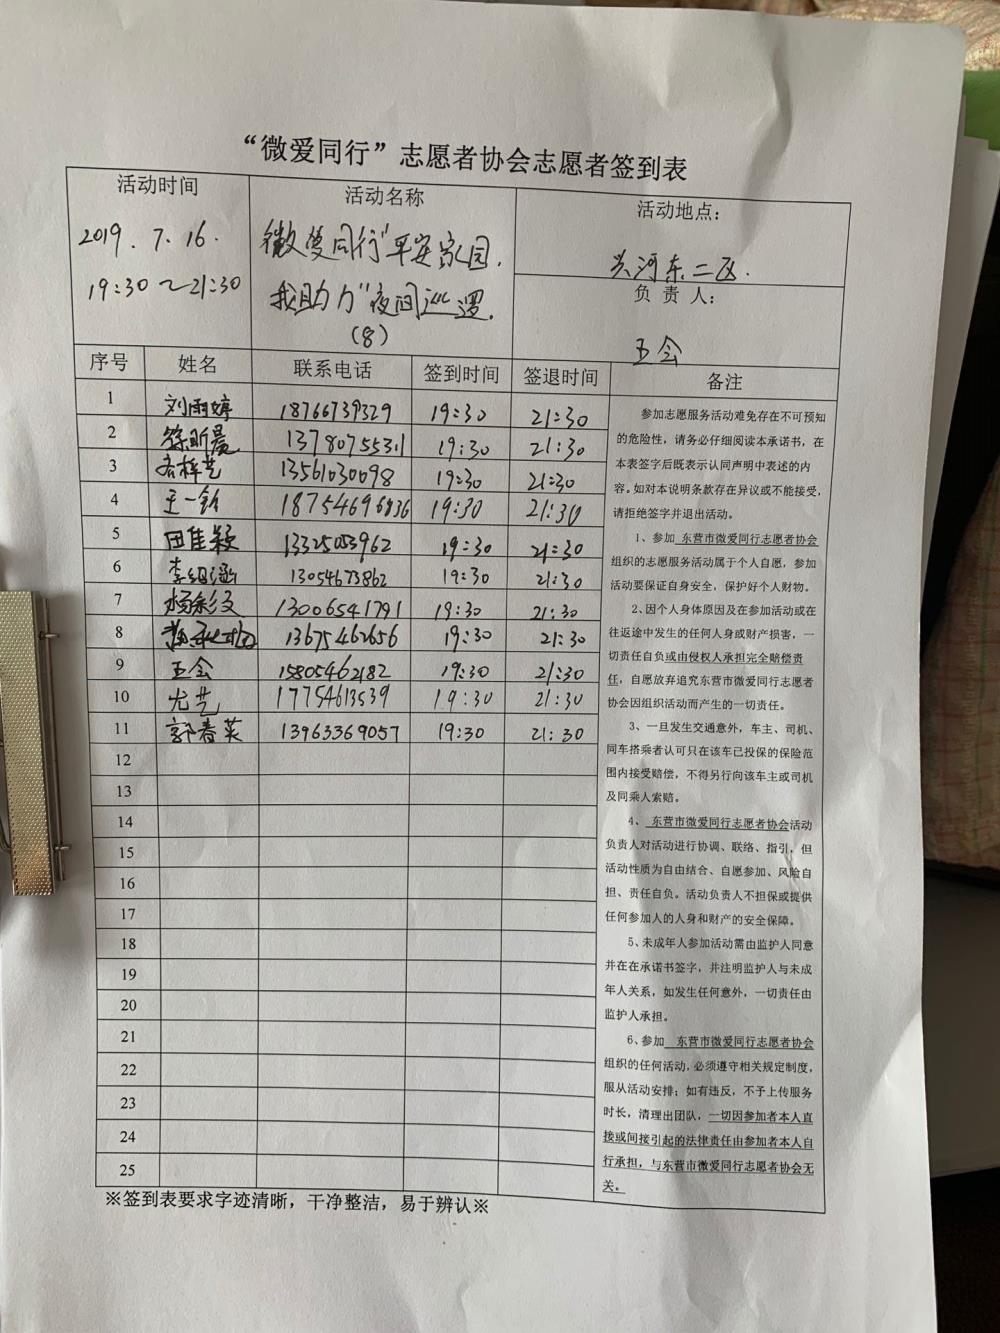 “微爱同行”志愿者协会志愿者签到表
活动时间
2019.7.16.
19:30～21:30
活动名称
微爱同行"平安家园.
我助力"夜间巡逻.
(8)
活动地点：
河东二区.
负 责 人：
王会
序号 姓名 联系电话 签到时间 签退时间 备注
1 刘雨婷 18766739329 19:30 21:30
2 徐昕晨 13780755311 19:30 21:30
3 梓艺 13561030098 19:30 21:30
4 王一 18754696836 19:30 21:30
5 田佳颖 19:30 21:30
6 李绍涵 13054673862 19:30 21:30
7 杨彩文 13006541791 19:30 21:30
8 13675462656 19:30 21:30
9 王会 15805462182 19:30 21:30
10 尤艺 17754613539 19:30 21:30
11 郭春英 13963369057 19:30 21:30
12
13
14
15
16
17
18
19
20
21
22
23
24
25
参加志愿服务活动难免存在不可预知
的危险性，请务必仔细阅读本承诺书，在
本表签字后既表示认同声明中表述的内
容。如对本说明条款存在异议或不能接受，
请拒绝签字并退出活动。
1、参加 东营市微爱同行志愿者协会
组织的志愿服务活动属于个人自愿，参加
活动要保证自身安全，保护好个人财物。
2、因个人身体原因及在参加活动或在
往返途中发生的任何人身或财产损害，一
切责任自负或由侵权人承担完全赔偿责
任，自愿放弃追究东营市微爱同行志愿者
协会因组织活动而产生的一切责任。
3、一旦发生交通意外，车主、司机、
同车搭乘者认可只在该车已投保的保险范
围内接受赔偿，不得另行向该车主或司机
及同乘人索赔。
4、 东营市微爱同行志愿者协会活动
负责人对活动进行协调、联络、指引，但
活动性质为自由结合、自愿参加、风险自
担、责任自负。活动负责人不担保或提供
任何参加人的人身和财产的安全保障。
5、未成年人参加活动需由监护人同意
并在在承诺书签字，并注明监护人与未成
年人关系，如发生任何意外，一切责任由
监护人承担。
6、参加 东营市微爱同行志愿者协会
组织的任何活动，必须遵守相关规定制度，
服从活动安排；如有违反，不予上传服务
时长，清理出团队，一切因参加者本人直
接或间接引起的法律责任由参加者本人自
行承担，与东营市微爱同行志愿者协会无
关。
※签到表要求字迹清晰，干净整洁，易于辨认※